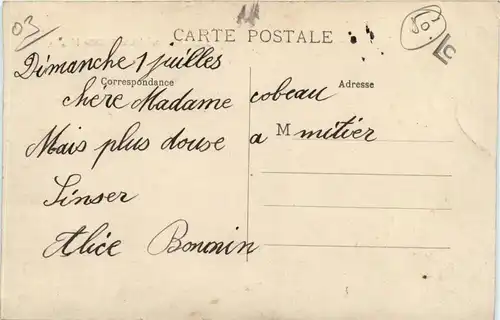 03
CARTE POSTALE
Dimanche 1 juilles
Correspondance
Adresse
chére Madame cobeau
Mais plus douse a M mitier
Sinser
Alice Bononin